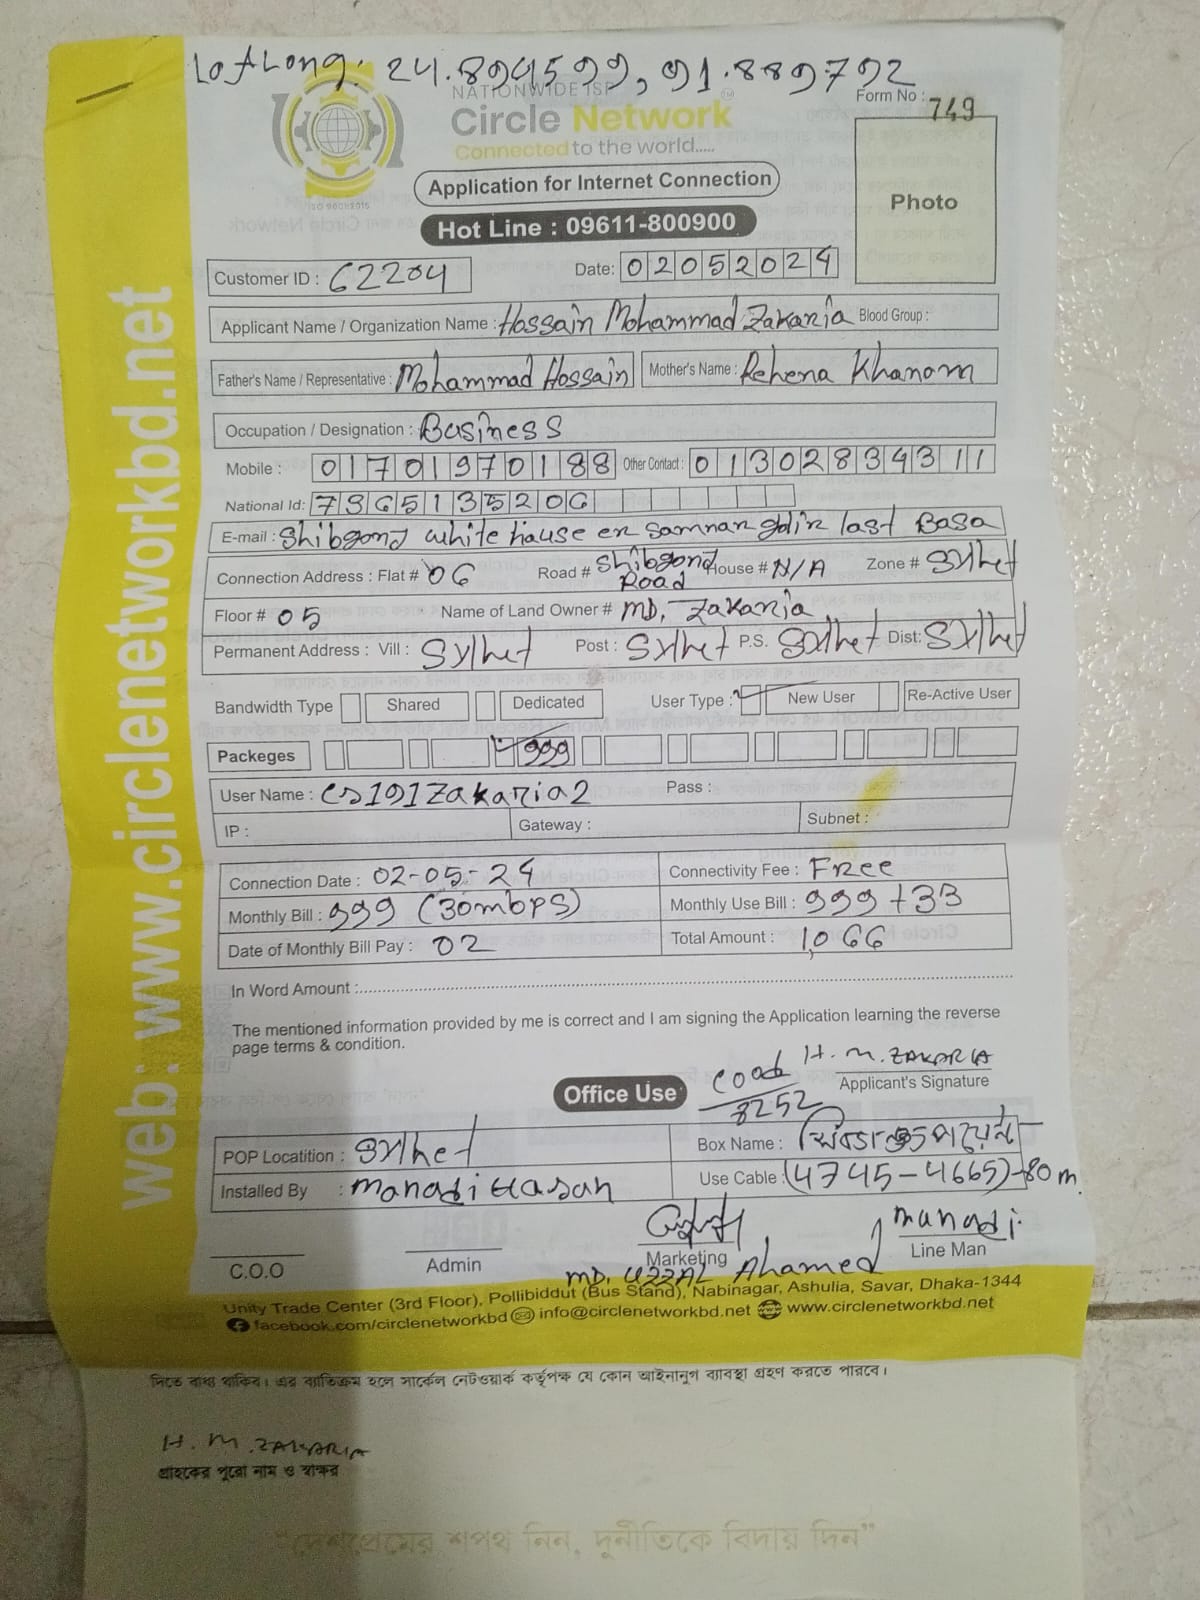 Lat Long: 24.894599, 91.889792
NATIONWIDE ISP
Form No : 749
Circle Network
Connected to the world.....
ISO 9001:2015
Application for Internet Connection
Photo
Hot Line : 09611-800900
Customer ID : 62204 Date: 02052024
Applicant Name / Organization Name : Hossain Mohammad Zakaria Blood Group :
Father's Name / Representative : Mohammad Hossain Mother's Name : Rehena Khanom
Occupation / Designation : Business
Mobile : 01701970188 Other Contact : 01302834311
National Id: 7365135206
E-mail : Shibgonj white hause er samnar golir last Basa
Connection Address : Flat # 06 Road # Shibgonj Road House # N/A Zone # Sylhet
Floor # 05 Name of Land Owner # MD, Zakaria
Permanent Address : Vill : Sylhet Post : Sylhet P.S. Sylhet Dist: Sylhet
Bandwidth Type Shared Dedicated User Type : New User Re-Active User
Packeges 999
User Name : cs191zakaria2 Pass :
IP : Gateway : Subnet :
Connection Date : 02-05-24 Connectivity Fee : Free
Monthly Bill : 999 (30mbps) Monthly Use Bill : 999 + 33
Date of Monthly Bill Pay : 02 Total Amount : 1,066
In Word Amount :
The mentioned information provided by me is correct and I am signing the Application learning the reverse
page terms & condition.
H. M. ZAKARIA
Applicant's Signature
Office Use
Coad
8252
POP Locatition : Sylhet Box Name :
Installed By : Manadi Hasan Use Cable : (4745-4665)-80 m.
manadi
C.O.O Admin Marketing Line Man
MD. UZZAL Ahamed
Unity Trade Center (3rd Floor), Pollibiddut (Bus Stand), Nabinagar, Ashulia, Savar, Dhaka-1344
facebook.com/circlenetworkbd info@circlenetworkbd.net www.circlenetworkbd.net
web: www.circlenetworkbd.net
দিতে বাধ্য থাকিব। এর ব্যতিক্রম হলে সার্কেল নেটওয়ার্ক কর্তৃপক্ষ যে কোন আইনানুগ ব্যাবস্থা গ্রহণ করতে পারবে।
H. M. ZAKARIA
গ্রাহকের পুরো নাম ও স্বাক্ষর
"দেশপ্রেমের শপথ নিন, দুর্নীতিকে বিদায় দিন"